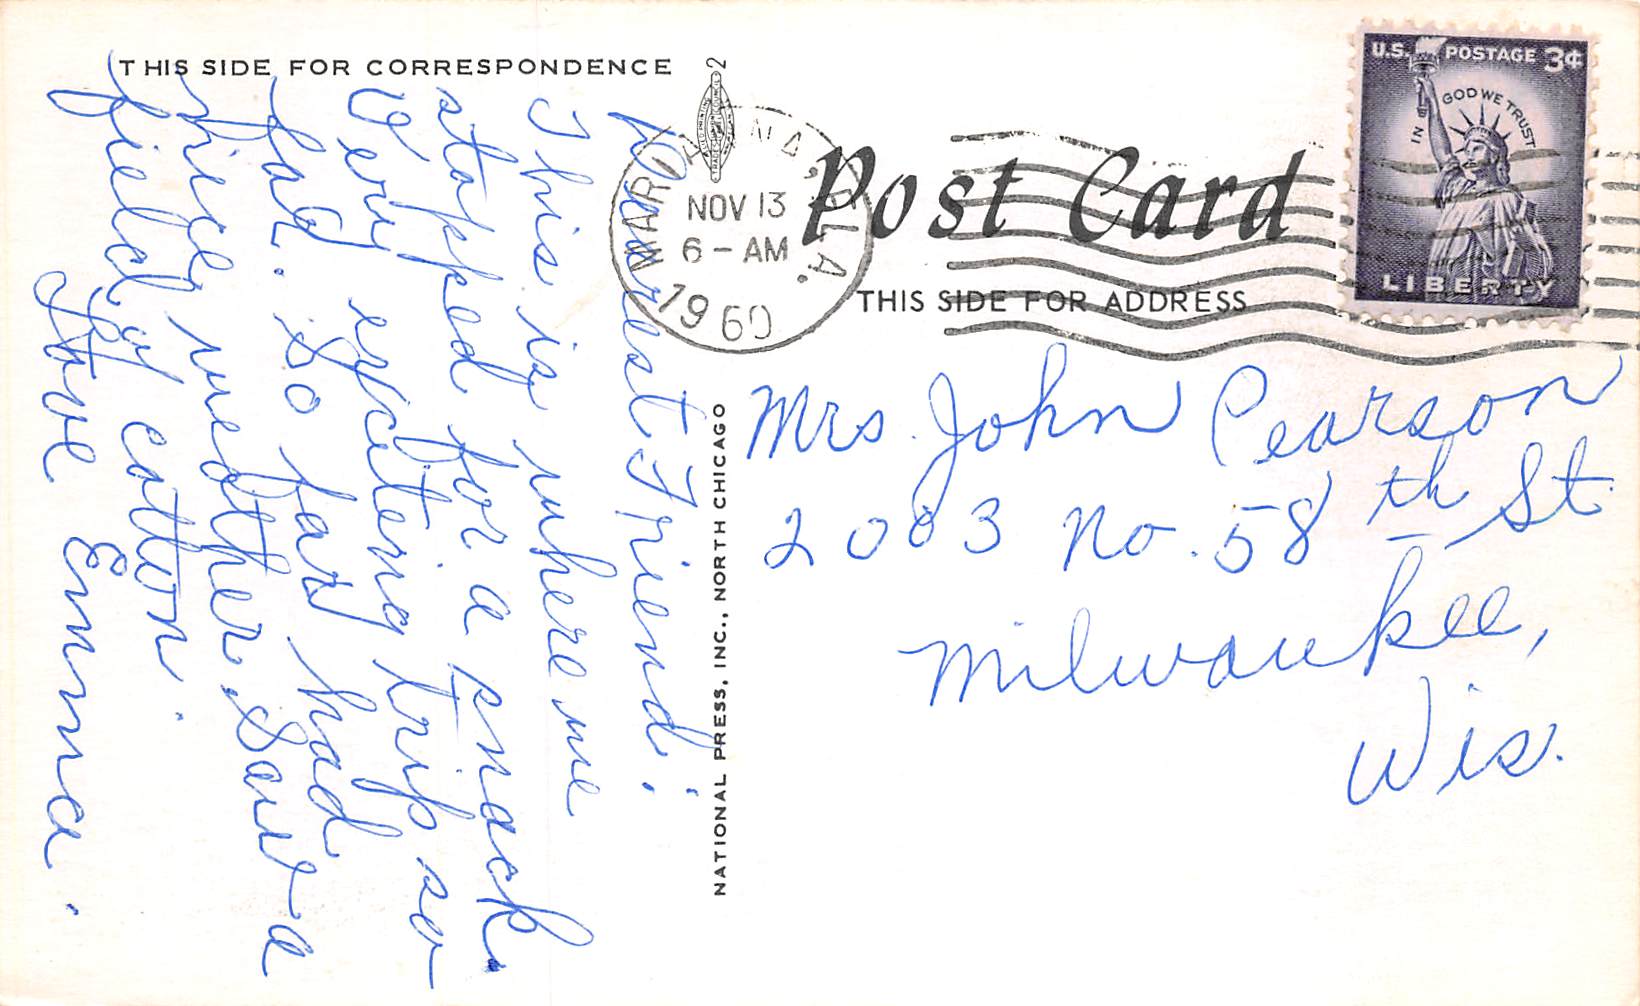 THIS SIDE FOR CORRESPONDENCE
Dearest Friend:
This is where we
stopped for a snack.
Very exciting trip so
far. So far had
nice weather. Saw a
field of cotton.
Love Emma.
NATIONAL PRESS, INC., NORTH CHICAGO
2
MARIANNA, FLA.
NOV 13
6-AM
1960
Post Card
THIS SIDE FOR ADDRESS
U.S. POSTAGE 3¢
IN GOD WE TRUST
LIBERTY
Mrs. John Pearson
2003 No. 58th St.
Milwaukee,
Wis.